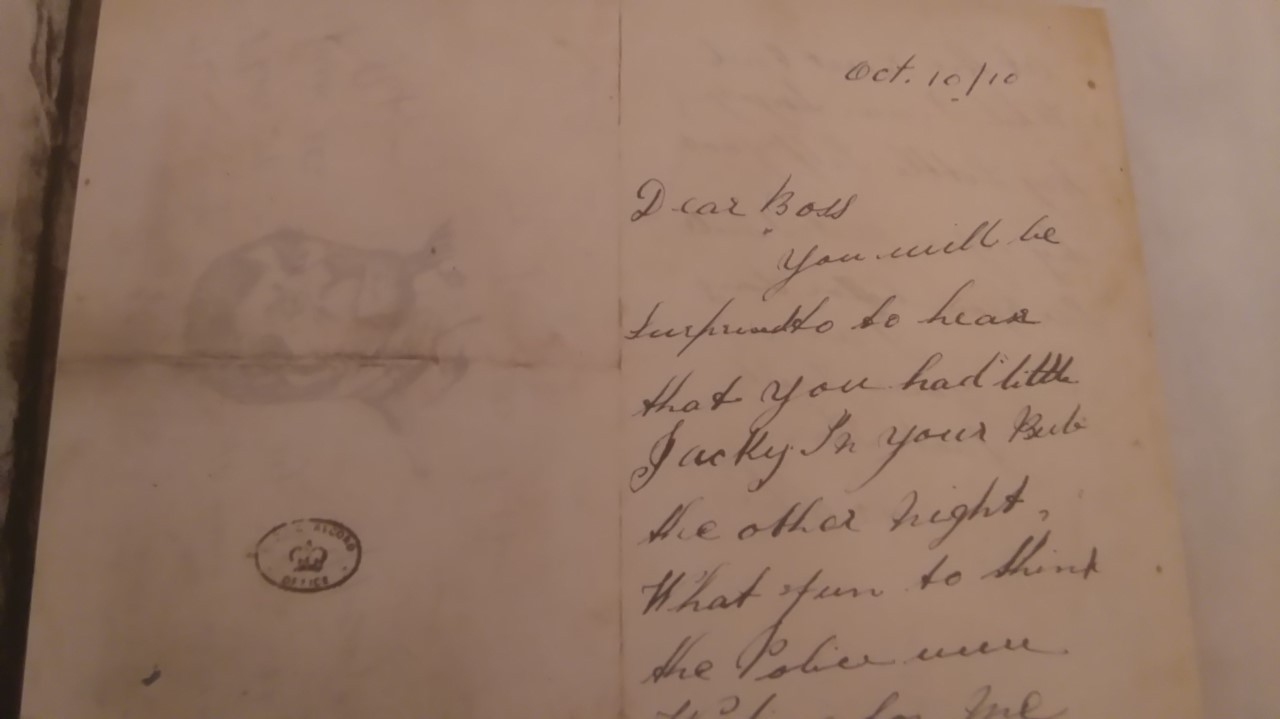 Oct. 10/10
Dear Boss
You will be
to hear
that you had little
Jacky In your
the other Night,
What fun to think
the Police were
for Me
RECORD
OFFICE